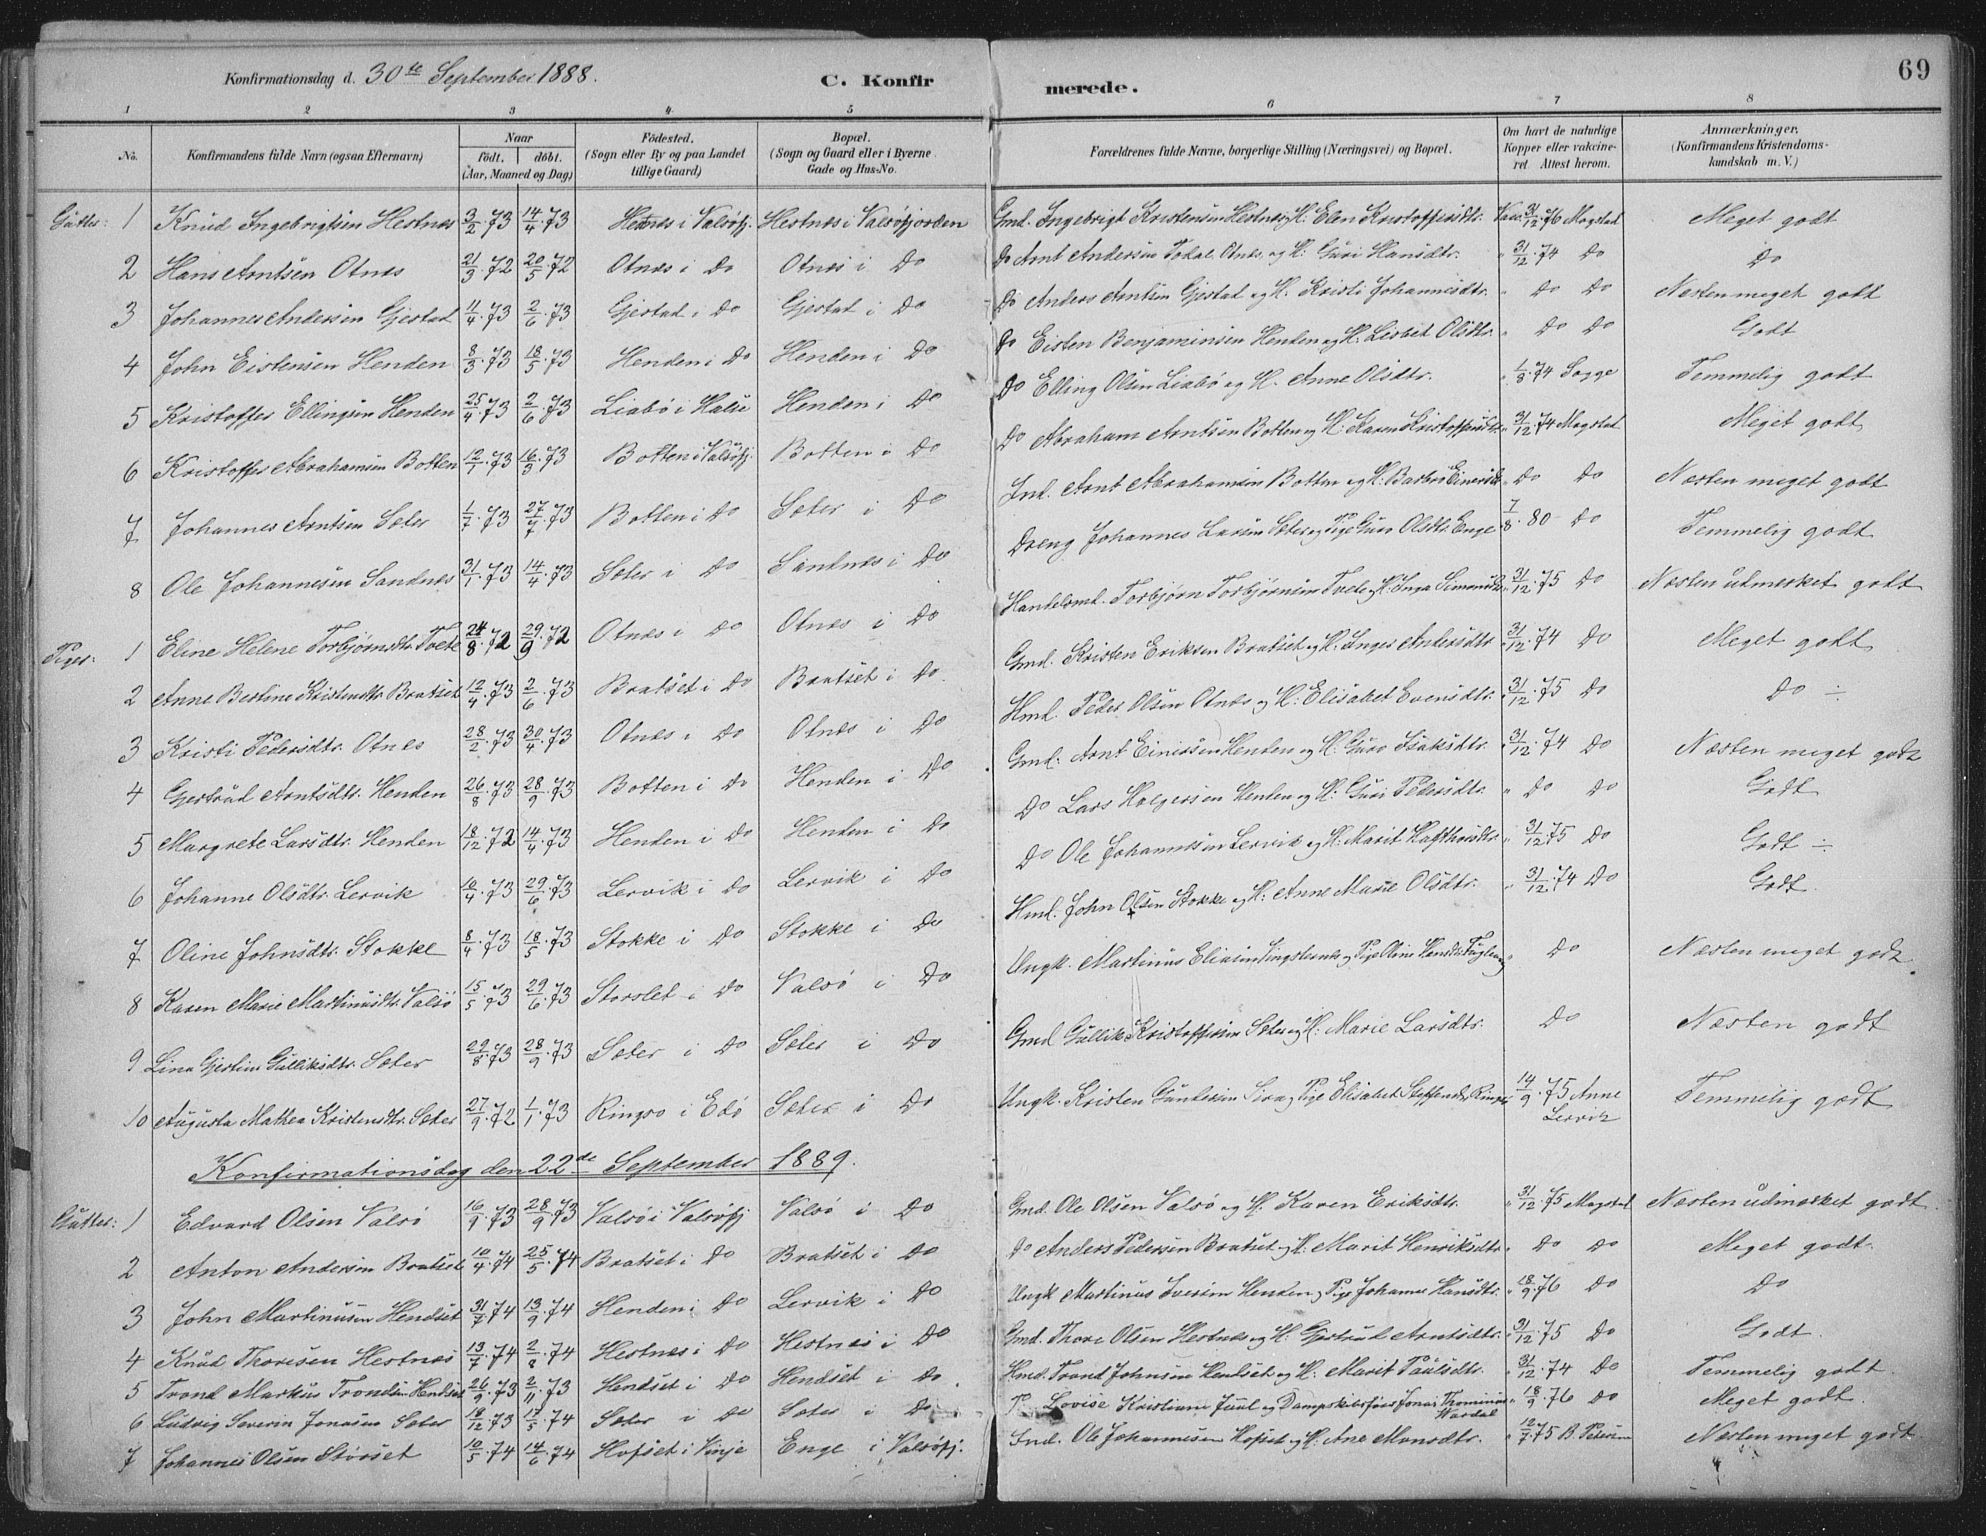 69
Konfirmationsdag d. 30te September 1888. C. Konfirmerede.
1 2 3 4 5 6 7 8
No. Konfirmandens fulde Navn (ogsaa Efternavn) Naar födt. döbt. (Aar, Maaned og Dag) Födested. (Sogn eller By og paa Landet tillige Gaard) Bopæl. (Sogn og Gaard eller i Byerne Gade og Hus-No. Forældrenes fulde Navne, borgerlige Stilling (Næringsvei) og Bopæl. Om havt de naturlige Kopper eller vakcineret Attest herom. Anmærkninger. (Konfirmandens Kristendomskundskab m. V.)
Gutter: 1 Knud Ingebrigtsen Hestnes 3/2.73 14/4.73 Hestnes i Valsöfj. Hestnes i Valsöfjorden Gmd. Ingebrigt Kristensen Hestnes og H. Elen Kristoffersdtr. Vac. 31/12.76 Magstad Meget godt
2 Hans Arntsen Otnes 21/3.72 20/5.72 Otnes i Do Otnes i Do Do Arnt Andersen Todal Otnes og H. Guri Hansdtr. " 31/12.74 Do Do
3 Johannes Andersen Gjestad 11/4.73 2/6.73 Gjestad i Do Gjestad i Do Do Anders Arntsen Gjestad og H. Kristi Johannesdtr. " Do Do Næsten meget godt
4 John Eistensen Henden 8/3.73 18/5.73 Henden i Do Henden i Do Do Eisten Benjaminsen Henden og H. Lisbet Olsdtr. " Do Do Godt
5 Kristoffer Ellingsen Henden 25/4.73 2/6.73 Liabö i Halse Henden i Do Do Elling Olsen Liabö og H. Anne Olsdtr. " 1/8.74 Sogge Temmelig godt
6 Kristoffer Abrahamsen Botten 12/1.73 16/3.73 Botten i Valsöfj. Botten i Do Do Abraham Arntsen Botten og H. Karen Kristoffersdtr. " 31/12.74 Magstad Meget godt
7 Johannes Arntsen Sæter 1/7.73 27/7.73 Botten i Do Sæter i Do Ind. Arnt Abrahamsen Botten og H. Barbro Einersdtr " Do Do Næsten meget godt
8 Ole Johannesen Sandnes 31/1.73 14/4.73 Sæter i Do Sandnes i Do Dreng Johannes Larsen Sæter og Pige Guri Olsdtr. Enge 7/8.80 Do Temmelig godt
Piger: 1 Eline Helene Torbjörnsdtr. Tvete 24/8.72 29/9.72 Otnes i Do Otnes i Do Handelsmd. Torbjörn Torbjörnsen Tvete og H. Inga Simonsdtr " 31/12.75 Do Næsten udmerket godt
2 Anne Bertine Kristensdtr. Bratset 12/4.73 2/6.73 Bratset i Do Bratset i Do Gmd. Kristen Eriksen Bratset og H. Inger Andersdtr. " 31/12.74 Do Meget godt
3 Kristi Pedersdtr. Otnes 28/2.73 30/4.73 Otnes i Do Otnes i Do Hmd. Peder Olsen Otnes og H. Elisabet Evensdtr. " 31/12.75 Do Do ÷
4 Gjertrud Arntsdtr. Henden 26/8.73 28/9.73 Botten i Do Henden i Do Gmd. Arnt Einersen Henden og H. Guro Isaksdtr. " 31/12.74 Do Næsten meget godt
5 Margrete Larsdtr. Henden 18/12.72 14/4.73 Henden i Do Henden i Do Do Lars Holgersen Henden og H. Guri Pedersdtr. " Do Do Godt
6 Johanne Olsdtr. Lervik 10/4.73 29/6.73 Lervik i Do Lervik i Do Do Ole Johannesen Lervik og H. Marit Hafthorsdtr. " 31/12.75 Do Godt ÷
7 Oline Johnsdtr. Stokke 8/4.73 18/5.73 Stokke i Do Stokke i Do Hmd. John Olsen Stokke og H. Anne Marie Olsdtr. " 31/12.74 Do Godt.
8 Karen Marie Martinusdtr. Valsö 15/5.73 29/6.73 Storslet i Do Valsö i Do Ungk. Martinus Eliasen og Pige Oline Do Næsten meget godt.
9 Lina Gjertine Gulliksdtr. Sæter 29/8.73 28/9.73 Sæter i Do Sæter i Do Gmd. Gullik Kristoffersen Sæter og H. Marie Larsdtr. Do Næsten godt
10 Augusta Mathea Kristensdtr. Sæter 27/9.72 1/1.73 Ringsö i Edö Sæter i Do Ungk. Kristen Gundersen og Pige Elisabet Steffensdtr. Ringsö 14/9.75 Anne Lervik Temmelig godt
Konfirmationsdag den 22de September 1889.
Gutter: 1 Edvard Olsen Valsö 16/9.73 28/9.73 Valsö i Valsöfj Valsö i Do Gmd. Ole Olsen Valsö og H. Karen Eriksdtr. " 31/12.75 Magstad Næsten udmærket godt.
2 Anton Andersen Bratset 10/4.74 25/5.74 Bratset i Do Bratset i Do Do Anders Pedersen Bratset og H. Marit Henriksdtr. " Do Do Meget godt.
3 John Martinusen Hendset 31/7.74 13/9.74 Henden i Do Lervik i Do Ungk Martinus Iversen Henden og Pige Johanne Hansdtr. " 18/9.76 Do Do
4 Knud Thoresen Hestnes 13/7.74 2/8.74 Hestnes i Do Hestnes i Do Gmd. Thore Olsen Hestnes og H. Gjertrud Arntsdtr. " 31/12.75 Do Godt.
5 Trond Markus Trondsen Hendset 26/9.73 2/11.73 Hendset i Do Hendset i Do. Hmd. Trond Johnsen Hendset og H. Marit Paulsdtr. " 31/12.74 Do Temmelig godt.
6 Ludvig Severin Jonasen Sæter 18/12.73 17/5.74 Sæter i Do Sæter i Do P. Lovise Kristiane Juul og Dampskibsförer Jonas Thominus Wardal " 18/9.76 Do Meget godt.
7 Johannes Olsen Storset 10/5.74 14/6.74 Hofset i Vinje Enge i Valsöfj. Ind. Ole Johannesen Hofset og H. Ane Monsdtr. " 12/7.75 B. Pedersen Næsten meget godt.